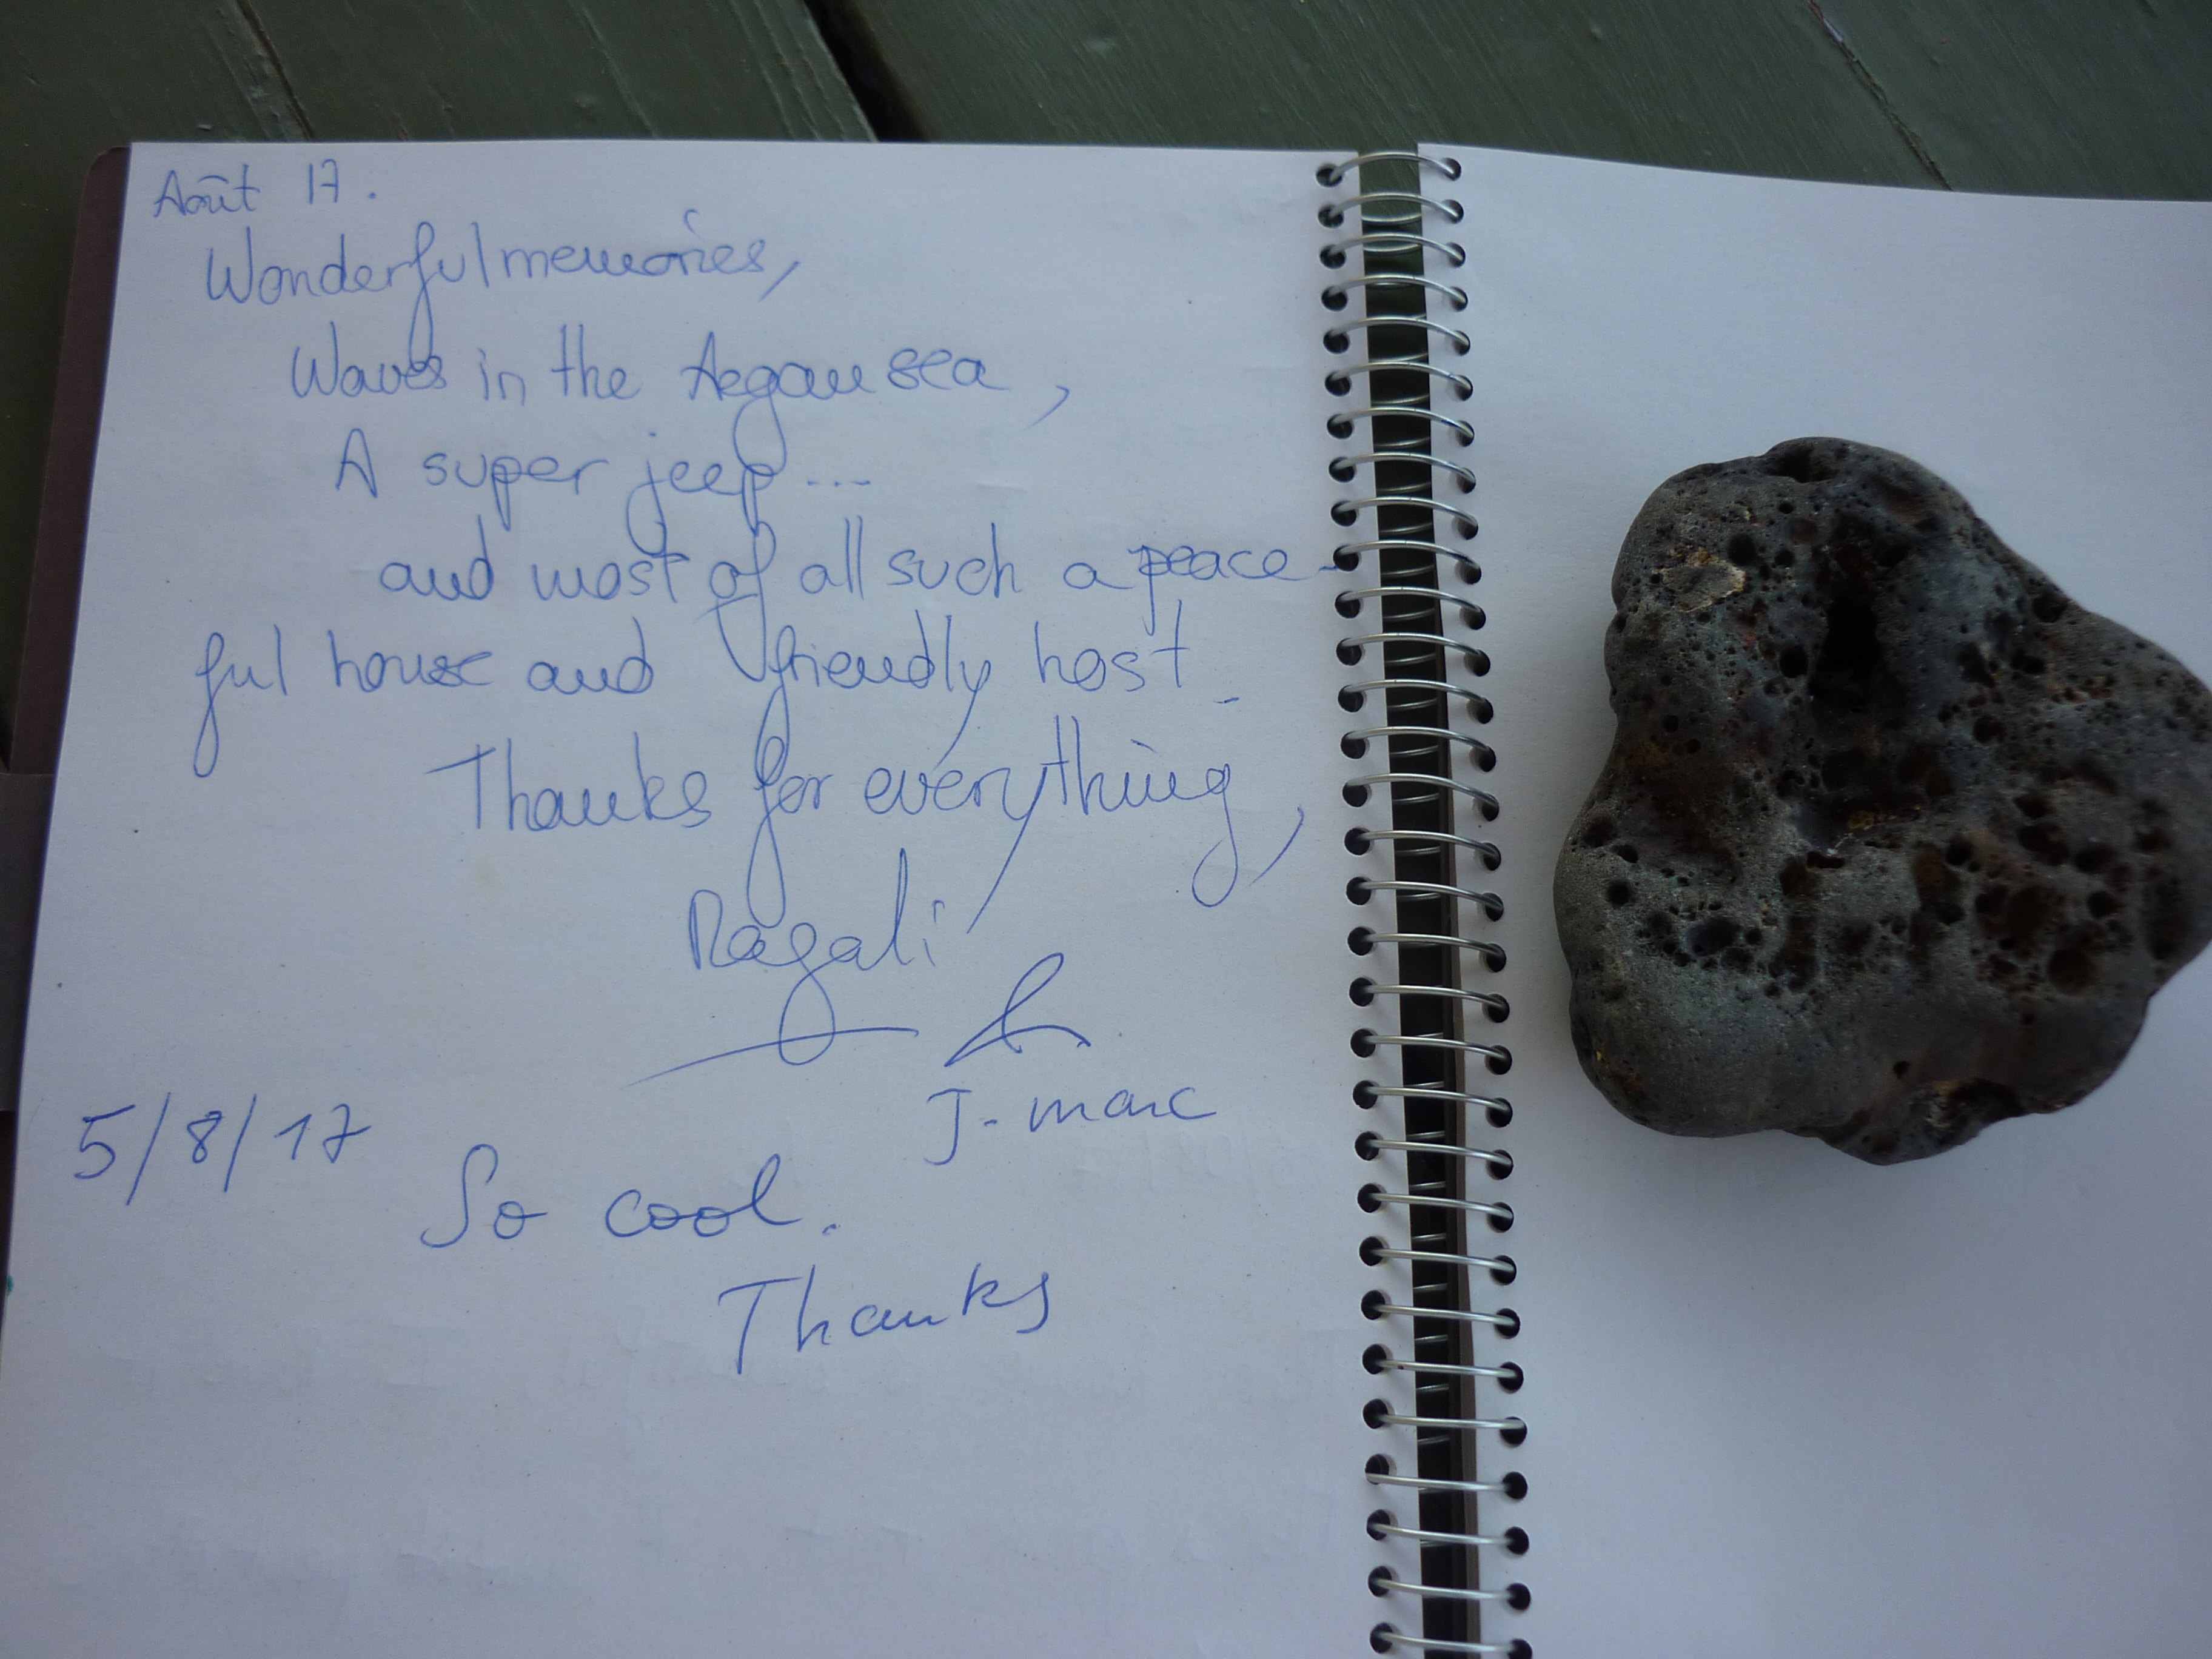 Août 17.
Wonderful memories,
Waves in the Aegan sea,
A super jeep...
and most of all such a peace-
ful house and friendly host.
Thanks for everything,
Magali
J-marc
5/8/17
So cool.
Thanks